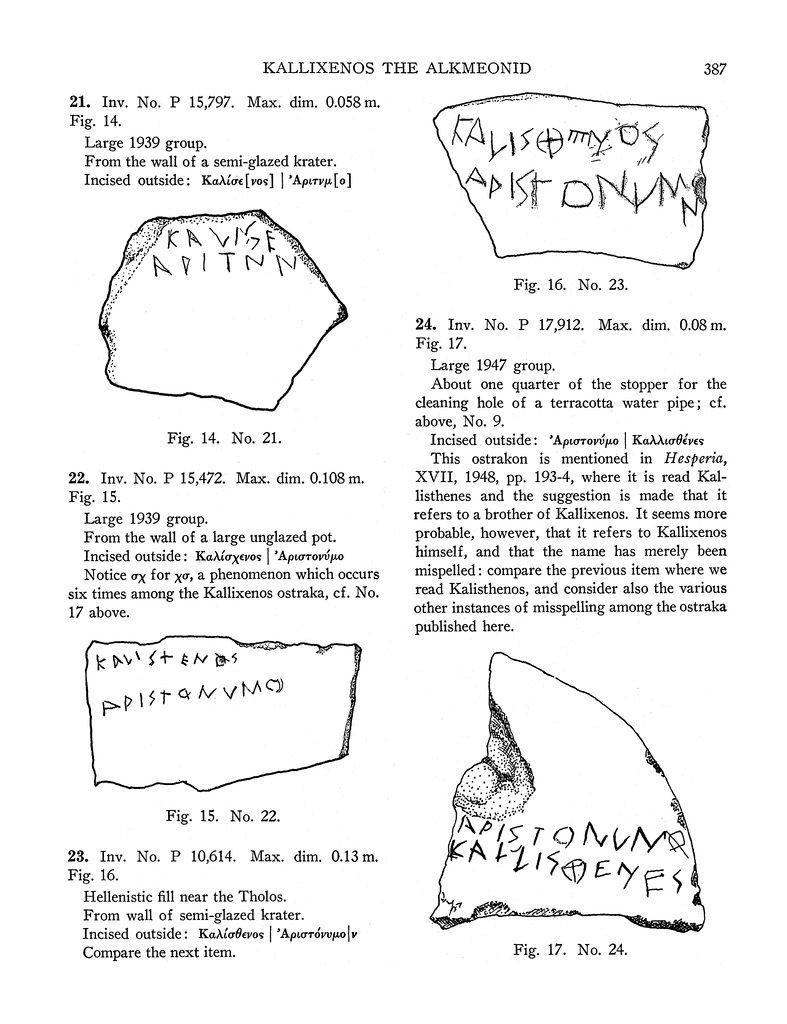 KALLIXENOS THE ALKMEONID 387
21. Inv. No. P 15,797. Max. dim. 0.058 m.
Fig. 14.
Large 1939 group.
From the wall of a semi-glazed krater.
Incised outside: Καλίσε[νος] | Ἀριτνμ[ο]
ΚΑLΙSΕ
ΑΡΙΤΝΝ
Fig. 14. No. 21.
22. Inv. No. P 15,472. Max. dim. 0.108 m.
Fig. 15.
Large 1939 group.
From the wall of a large unglazed pot.
Incised outside: Καλίσχενος | Ἀριστονύμο
Notice σχ for χσ, a phenomenon which occurs
six times among the Kallixenos ostraka, cf. No.
17 above.
ΚΑLΙS+ΕΝΟS
ΑΡΙSΤΟΝVΜΟ
Fig. 15. No. 22.
23. Inv. No. P 10,614. Max. dim. 0.13 m.
Fig. 16.
Hellenistic fill near the Tholos.
From wall of semi-glazed krater.
Incised outside: Καλίσθενος | Ἀριστόνυμο|ν
Compare the next item.
ΚΑLΙS⊕ΕΝΟS
ΑΡΙSΤΟΝVΜ
Ν
Fig. 16. No. 23.
24. Inv. No. P 17,912. Max. dim. 0.08 m.
Fig. 17.
Large 1947 group.
About one quarter of the stopper for the
cleaning hole of a terracotta water pipe; cf.
above, No. 9.
Incised outside: Ἀριστονύμο | Καλλισθένες
This ostrakon is mentioned in Hesperia,
XVII, 1948, pp. 193-4, where it is read Kal-
listhenes and the suggestion is made that it
refers to a brother of Kallixenos. It seems more
probable, however, that it refers to Kallixenos
himself, and that the name has merely been
mispelled: compare the previous item where we
read Kalisthenos, and consider also the various
other instances of misspelling among the ostraka
published here.
ΑΡΙSΤΟΝVΜΟ
ΚΑLLΙS⊕ΕΝΕS
Fig. 17. No. 24.